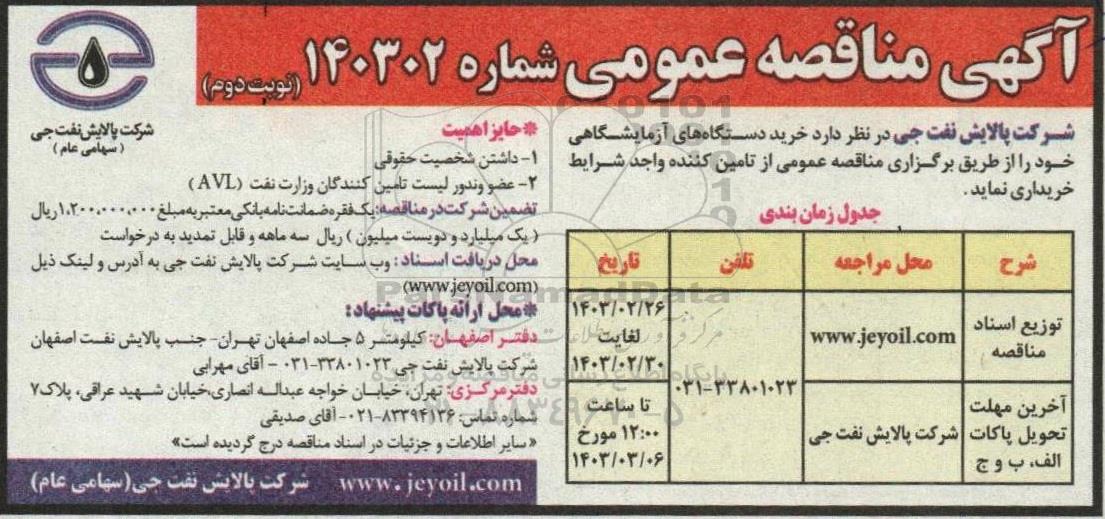 آگهی مناقصه عمومی شماره ۱۴۰۳۰۲ (نوبت دوم)
شرکت پالایش نفت جی
(سهامی عام)
شرکت پالایش نفت جی در نظر دارد خرید دستگاه‌های آزمایشگاهی
خود را از طریق برگزاری مناقصه عمومی از تامین کننده واجد شرایط
خریداری نماید.
جدول زمان بندی
شرح محل مراجعه تلفن تاریخ
توزیع اسناد مناقصه www.jeyoil.com ۰۳۱-۳۳۸۰۱۰۲۳ ۱۴۰۳/۰۲/۲۶ لغایت ۱۴۰۳/۰۲/۳۰
آخرین مهلت تحویل پاکات الف، ب و ج شرکت پالایش نفت جی تا ساعت ۱۲:۰۰ مورخ ۱۴۰۳/۰۳/۰۶
*حایز اهمیت
۱- داشتن شخصیت حقوقی
۲- عضو وندور لیست تامین کنندگان وزارت نفت (AVL)
تضمین شرکت در مناقصه: یک فقره ضمانت نامه بانکی معتبر به مبلغ ۱,۲۰۰,۰۰۰,۰۰۰ ریال
(یک میلیارد و دویست میلیون) ریال سه ماهه و قابل تمدید به درخواست
محل دریافت اسناد: وب سایت شرکت پالایش نفت جی به آدرس و لینک ذیل
(www.jeyoil.com)
*محل ارائه پاکات پیشنهاد:
دفتر اصفهان: کیلومتر ۵ جاده اصفهان تهران- جنب پالایش نفت اصفهان
شرکت پالایش نفت جی ۳۳۸۰۱۰۲۳-۰۳۱ - آقای مهرابی
دفتر مرکزی: تهران، خیابان خواجه عبداله انصاری، خیابان شهید عراقی، پلاک۷
شماره تماس: ۸۳۳۹۴۱۳۶-۰۲۱- آقای صدیقی
«سایر اطلاعات و جزئیات در اسناد مناقصه درج گردیده است»
www.jeyoil.com شرکت پالایش نفت جی(سهامی عام)
ParsNamadData